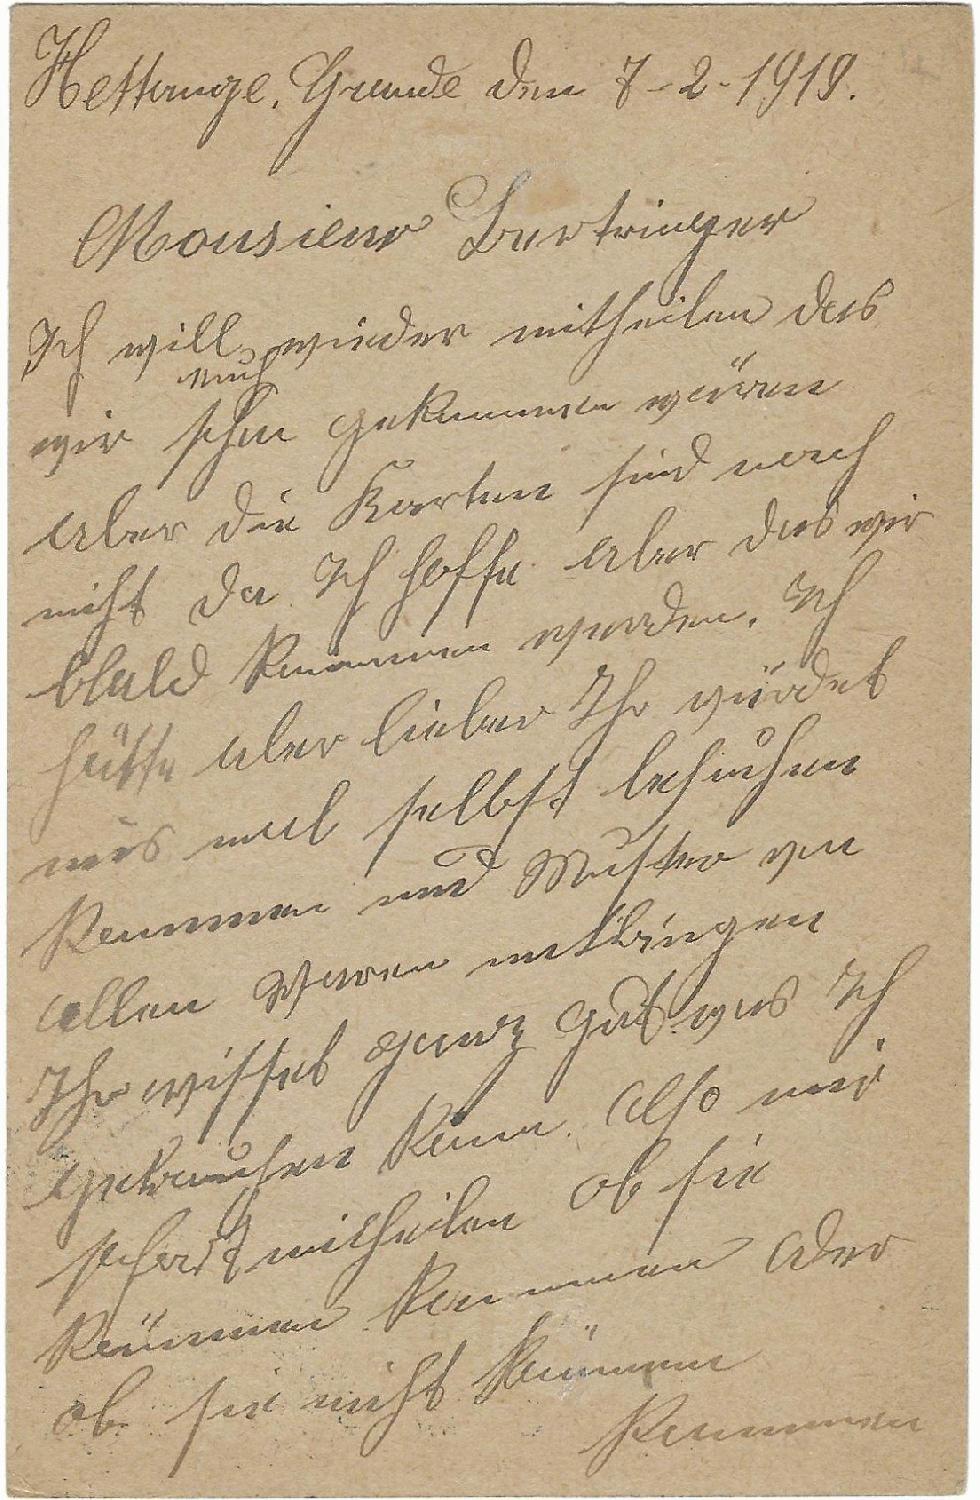 Hettange. Grande den 7-2-1919.
Monsieur Bertringer
Ich will wieder mitheilen das
auch
wir schon gekommen wären
aber die Karten sind noch
nicht da Ich hoffe aber das wir
bald kommen werden. Ich
hätte aber lieber Ihr würdet
uns mal selbst besuchen
kommen und Muster von
allen Waren mitbringen
Ihr wisset ganz gut was Ich
gebrauchen kann also mir
sofort mitheilen ob sie
können kommen oder
ob sie nicht können
kommen